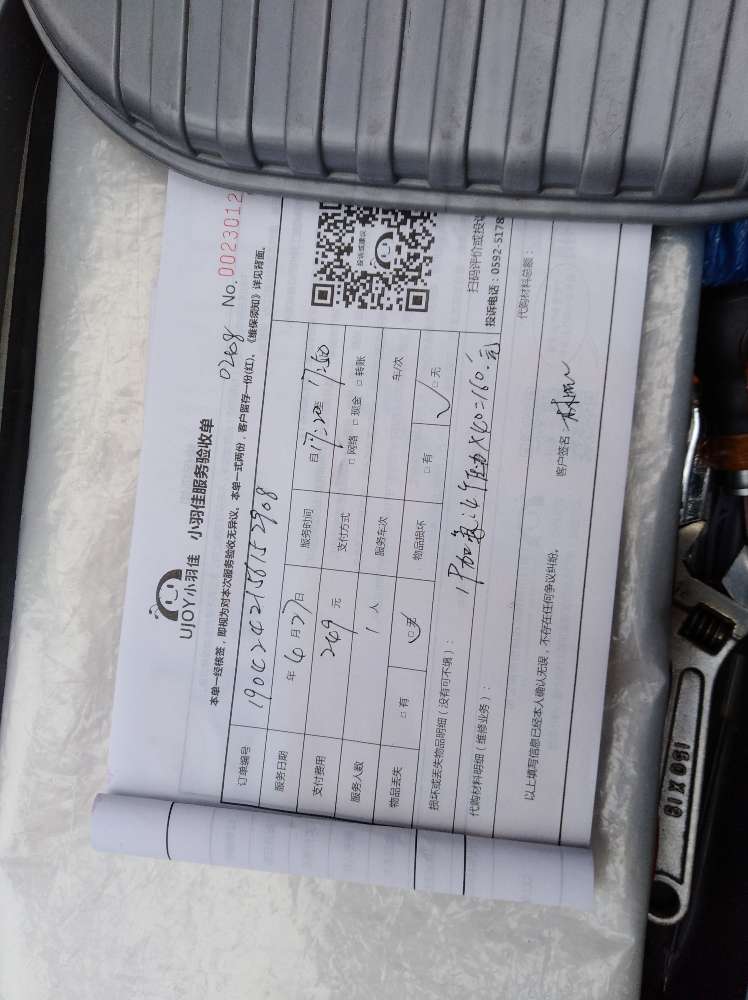 UJOY小羽佳 小羽佳服务验收单
0268 No. 0023012
本单一经核签，即视为对本次服务验收无异议。本单一式两份，客户留存一份(红)。《维保须知》详见背面。
订单编号
服务日期 年 4月27日 服务时间 自17:20至17:50
支付费用 249 元 支付方式 □网络 □现金 □转账
服务人数 1 人 服务车次 车/次
物品丢失 □有 □无 物品损坏 □有 □无
损坏或丢失物品明细（没有可不填）：
代购材料明细（维修业务）：
X40=160.元
代购材料总额：
以上填写信息已经本人确认无误，不存在任何争议纠纷。
客户签名
投诉或建议
扫码评价或投诉
投诉电话：0592-5178
150X18